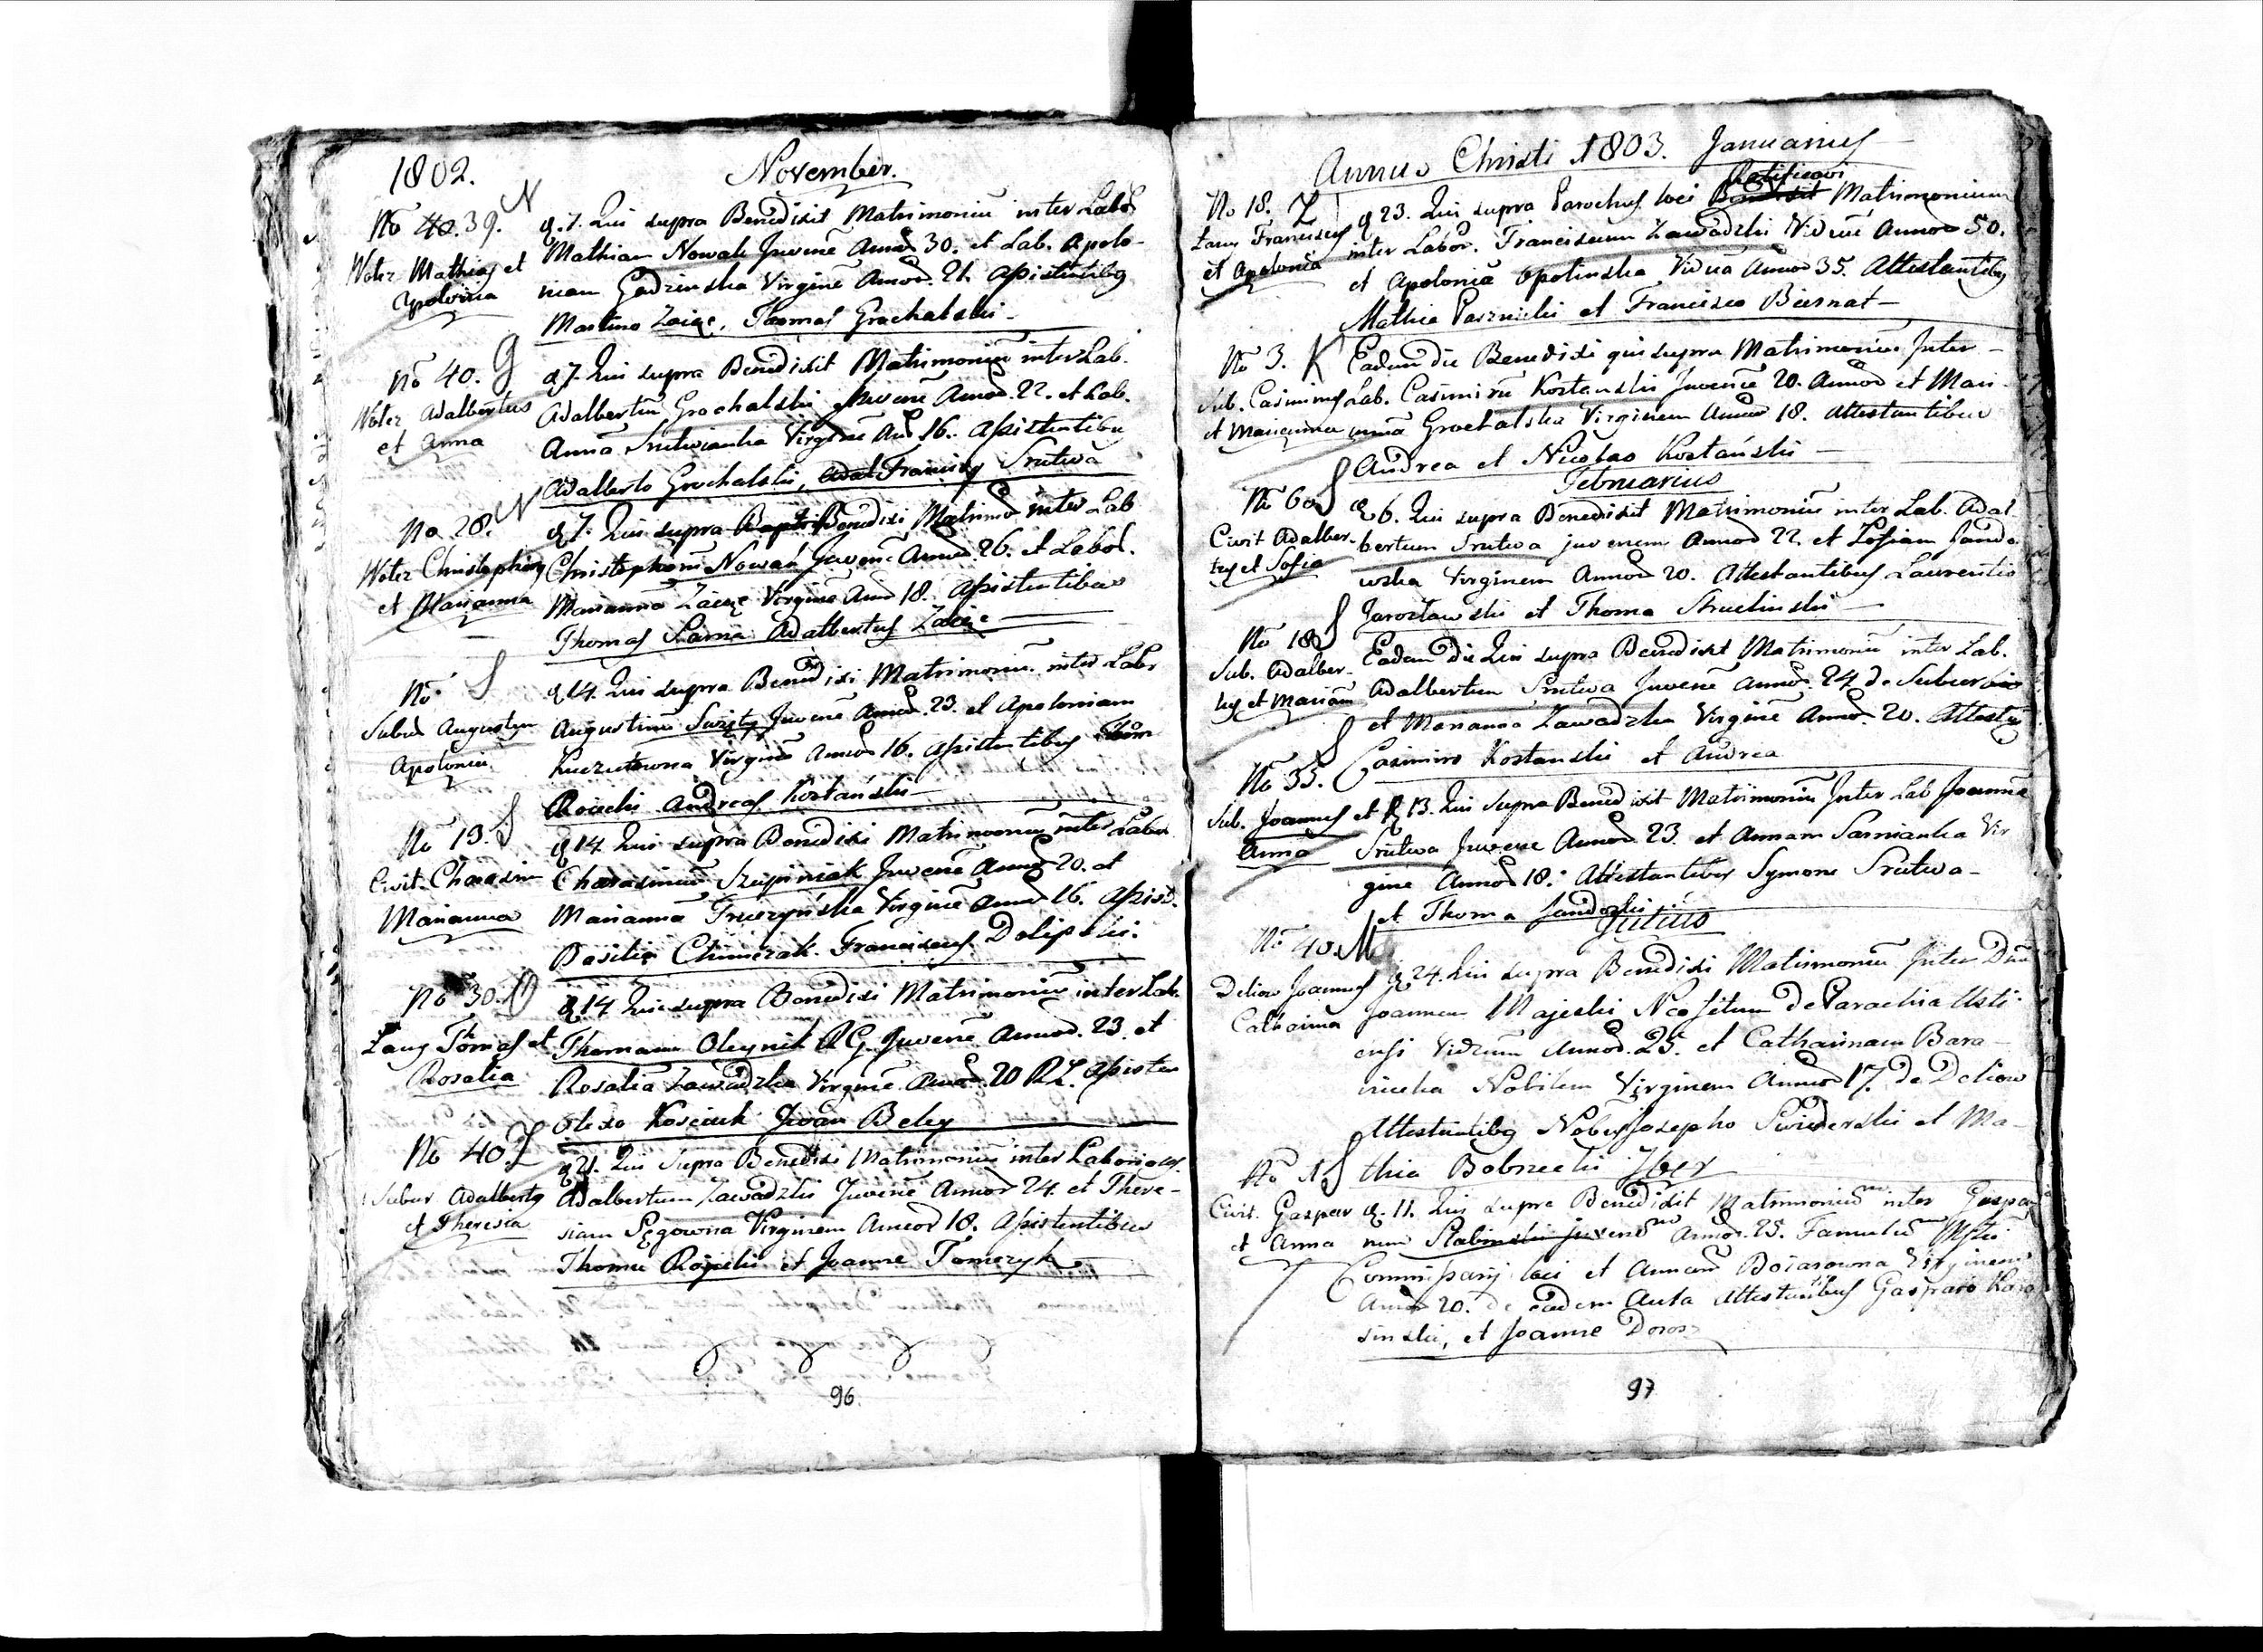 1802. November.
No 40. 39. N
Woler Mathias et
Apolonia
d. 7. Qui supra Benedixit Matrimoniũ inter Labo
Mathian Nowak Juvenẽ Annor 30. et Lab. Apolo-
niam Gadzinska Virginẽ Annor. 21. Assistentibg
Martino Zaiąc, Thomas Grochalski -
No 40. G
Woler Adalbertus
et Anna
d 7. Qui supra Benedixit Matrimoniũ inter Lab.
Adalbertũ Grochalski Juvenẽ Annor. 22. et Lab.
Annã Srutwianka Virginẽ Anň 16. Assistentibu
Adalberto Grochalski, Adal Francisg Srutwa
No 28. N
Woler Christophorg
et Marianna
d 7. Qui supra Bapti Benedixi Matrimo inter Lab
Christophorũ Nowak Juvenẽ Annor 26. et Labor.
Mariannã Zaiąc Virginẽ Ann 18. Assistentibus
Thomas Sarna Adalbertus Zaiąc
No S
Subur Augustyn
Apolonia
d 14. Qui supra Benedixi Matrimoniũ inter Labr
Augustinũ Swięty Juvenẽ Annor. 23. et Apoloniam
Virginẽ Annor 16. Assistentibus
Roiecki Andreas Kostański
No 13. S
Civit. Charasim
Marianna
d 14 Qui supra Benedixi Matrimonium inter Labor
Charasimũ Szupiniak Juvenẽ Annor 20. et
Mariannã Truszyńska Virginẽ Annor 16. Assist.
Basilio Chimczak. Franciscus Dolipski.
No 30. O
Laug Tomas et
Rosalia
d 14 Qui supra Benedixi Matrimoniũ inter Lab.
Thomam Oleynik R G. Juvenẽ Annor. 23. et
Rosaliã Zawadzka Virginẽ Annor. 20 RL. Assisten
Olexo Kosciuk Jwan Beley
No 40. Z
Subur Adalbertg
et Theresia
d 21. Qui supra Benedixi Matrimoniũ inter Laborioss.
Adalbertum Zawadzki Juvenẽ Annor 24. et There-
siam Pęgowna Virginem Annor 18. Assistentibus
Thoma Rojecki et Joanne Tomczyk
96.
Annus Christi 1803. Januarius
Ratificavi
No 18. Z
Laug Franciscus
et Apolonia
d 23. Qui supra Parochus loci Benedixit Matrimonium
inter Labor. Franciscum Zawadzki Viduũ Annor 50.
et Apoloniã Opolinska Viduã Annor 35. Attestantibg
Mathia Pasznicki et Francisco Biernat -
No 3. K
Sub. Casimirus
et Marianna
Eadem die Benedixi qui supra Matrimonium Inter -
Lab. Casimirũ Kostanski Juvenẽ 20. Annor et Mari-
annã Grochalska Virginem Annor 18. Attestantibus
Andrea et Nicolao Kostański -
Februarius
No 60 S
Civit Adalber-
tus et Sofia
d 6. Qui supra Benedixit Matrimoniũ inter Lab. Adal-
bertum Srutwa juvenem Annor 22. et Zofiam Jando
wska Virginem Annor 20. Attestantibus Laurentio
Jarosławski et Thoma Struclinski -
No 18 S
Sub. Adalber-
tus et Mariañ
Eadem die Qui supra Benedixit Matrimoniũ inter Lab.
Adalbertum Srutwa Juvenẽ Annor. 24 de Suburbio
et Marianna Zawadzka Virginẽ Annor. 20. Attestũ
Casimiro Kostanski et Andrea
No 35. S
Sub. Joannes et
Anna
d 13. Qui Supra Benedixit Matrimoniũ Inter Lab Joannẽ
Srutwa Juvene Annor 23. et Annam Sarnianka Vir
gine Annor 18. Attestantibus Symone Srutwa -
et Thoma Jandoski
Julius
No 40. M
Deliow Joannes
Catharina
d 24. Qui supra Benedixi Matrimoniũ Inter Dnũ
Joannem Majeski Neofitum de Parachia Usti-
ensi Viduum Annor. 25. et Catharinam Bara-
niecka Nobilem Virginem Annor 17. de Deliow
Attestantibg Nobus Josepho Swiderski et Ma-
thia Bobrecki 7ber
No 1. S
Civit. Gasper
et Anna
d. 11. Qui supra Benedixit Matrimonium inter Gaspa
rum Stabinski juvenem Annor. 25. Famulũ
loci et Annam Boiarowna Virginem
Annor 20. de eadem Aula Attestantibus Gasparo Kara
sinski, et Joanne Doros
97